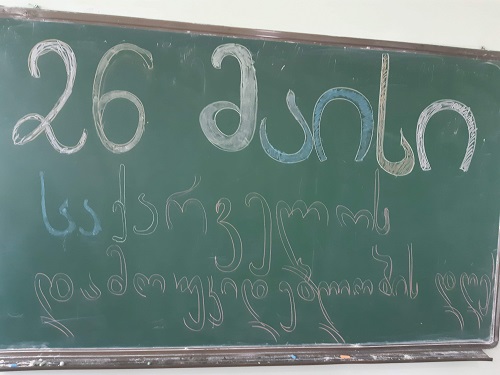 26 მაისი
საქართველოს
დამოუკიდებლობის დღე